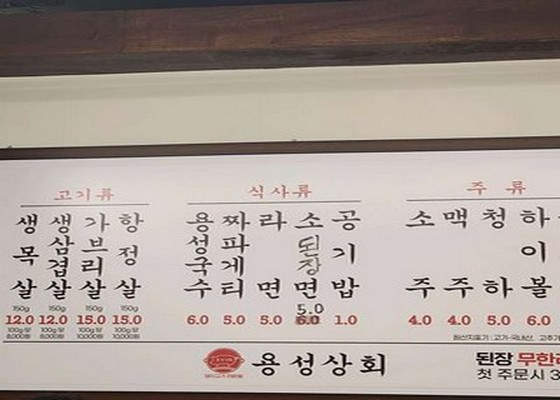 고기류
생목살
생삼겹살
가브리살
항정살
150g 150g 150g 150g
12.0 12.0 15.0 15.0
100g당 100g당 100g당 100g당
8,000원 8,000원 10,000원 10,000원
식사류
용성국수
짜파게티
라면
소된장면
공기밥
5.0
6.0 5.0 5.0 6.0 1.0
주류
소주
맥주
청하
하이볼
4.0 4.0 5.0 6.0
용성상회
된장 무한리
첫 주문시 3